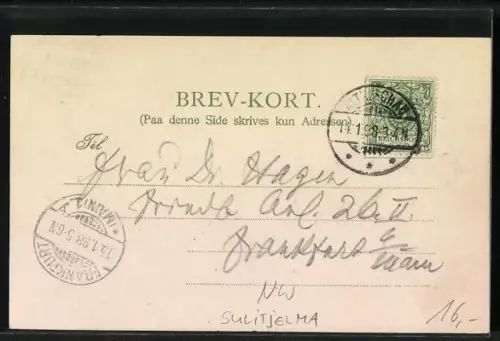 BREV-KORT.
(Paa denne Side skrives kun Adressen).
Til
Frau Dr. Hagen
26 II
Frankfurt a/
Main
NW
SULITJELMA
16,-
14.1.98.3-4N.
* * *
FRANKFURT
15.1.98.5-6N.
*(MAIN)1*